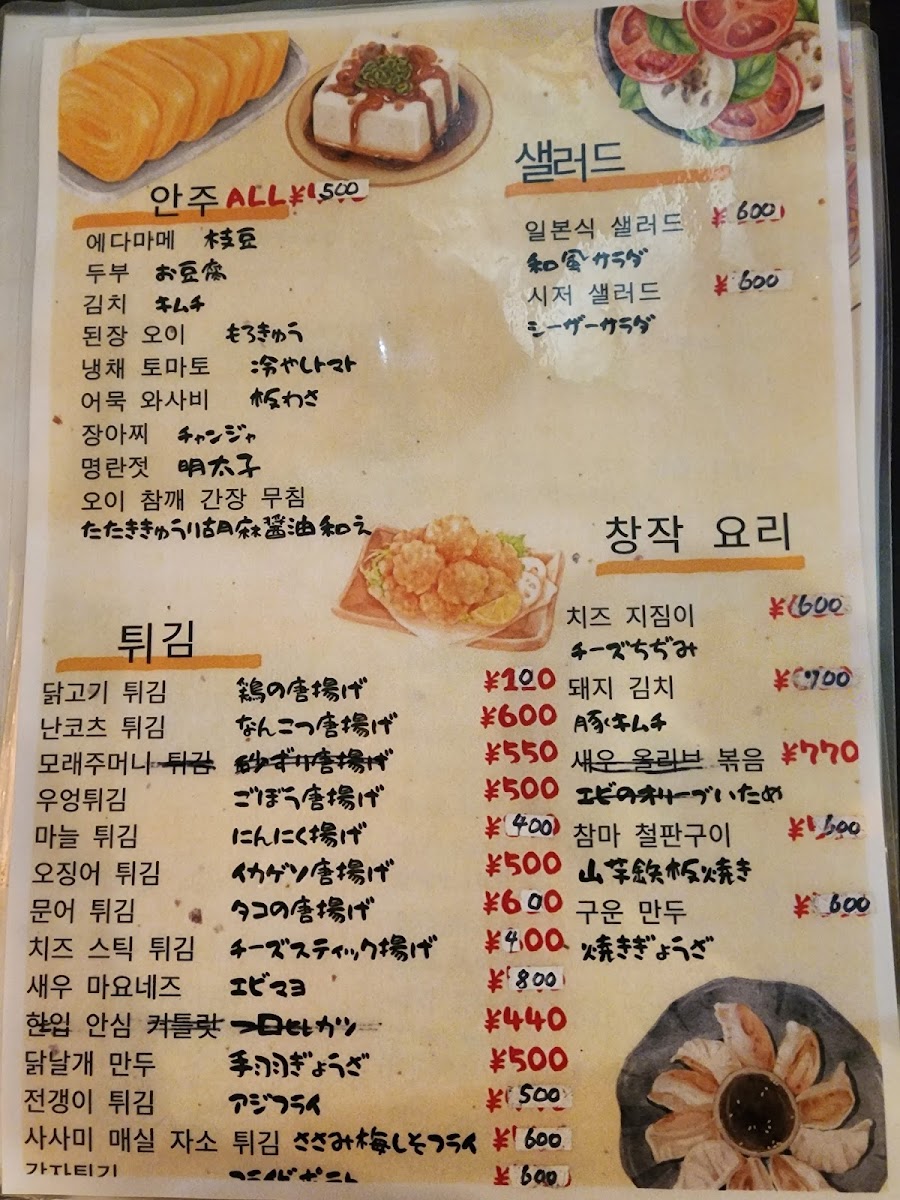 안주 ALL ¥500
에다마메 枝豆
두부 お豆腐
김치 キムチ
된장 오이 もろきゅう
냉채 토마토 冷やしトマト
어묵 와사비 板わさ
장아찌 チャンジャ
명란젓 明太子
오이 참깨 간장 무침
たたききゅうり胡麻醤油和え
샐러드
일본식 샐러드 ¥600
和風サラダ
시저 샐러드 ¥600
シーザーサラダ
튀김
닭고기 튀김 鶏の唐揚げ ¥100
난코츠 튀김 なんこつ唐揚げ ¥600
모래주머니 튀김 砂ずり唐揚げ ¥550
우엉튀김 ごぼう唐揚げ ¥500
마늘 튀김 にんにく揚げ ¥400
오징어 튀김 イカゲソ唐揚げ ¥500
문어 튀김 タコの唐揚げ ¥600
치즈 스틱 튀김 チーズスティック揚げ ¥400
새우 마요네즈 エビマヨ ¥800
한입 안심 커틀릿 一口ヒレカツ ¥440
닭날개 만두 手羽ぎょうざ ¥500
전갱이 튀김 アジフライ ¥500
사사미 매실 자소 튀김 ささみ梅しそフライ ¥600
감자튀김 フライドポテト ¥600
창작 요리
치즈 지짐이 ¥600
チーズちぢみ
돼지 김치 ¥700
豚キムチ
새우 올리브 볶음 ¥770
エビのオリーブいため
참마 철판구이 ¥600
山芋鉄板焼き
구운 만두 ¥600
焼きぎょうざ